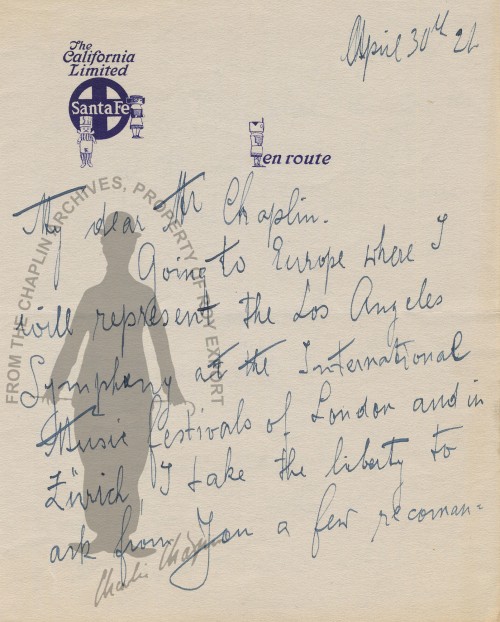 April 30th 26
The
California
Limited
Santa Fe
en route
FROM THE CHAPLIN ARCHIVES, PROPERTY OF ROY EXPORT
My dear Mr Chaplin.
Going to Europe where I
will represent the Los Angeles
Symphony at the International
Music festivals of London and in
Zürich I take the liberty to
ask from You a few recoman-
Charlie Chaplin